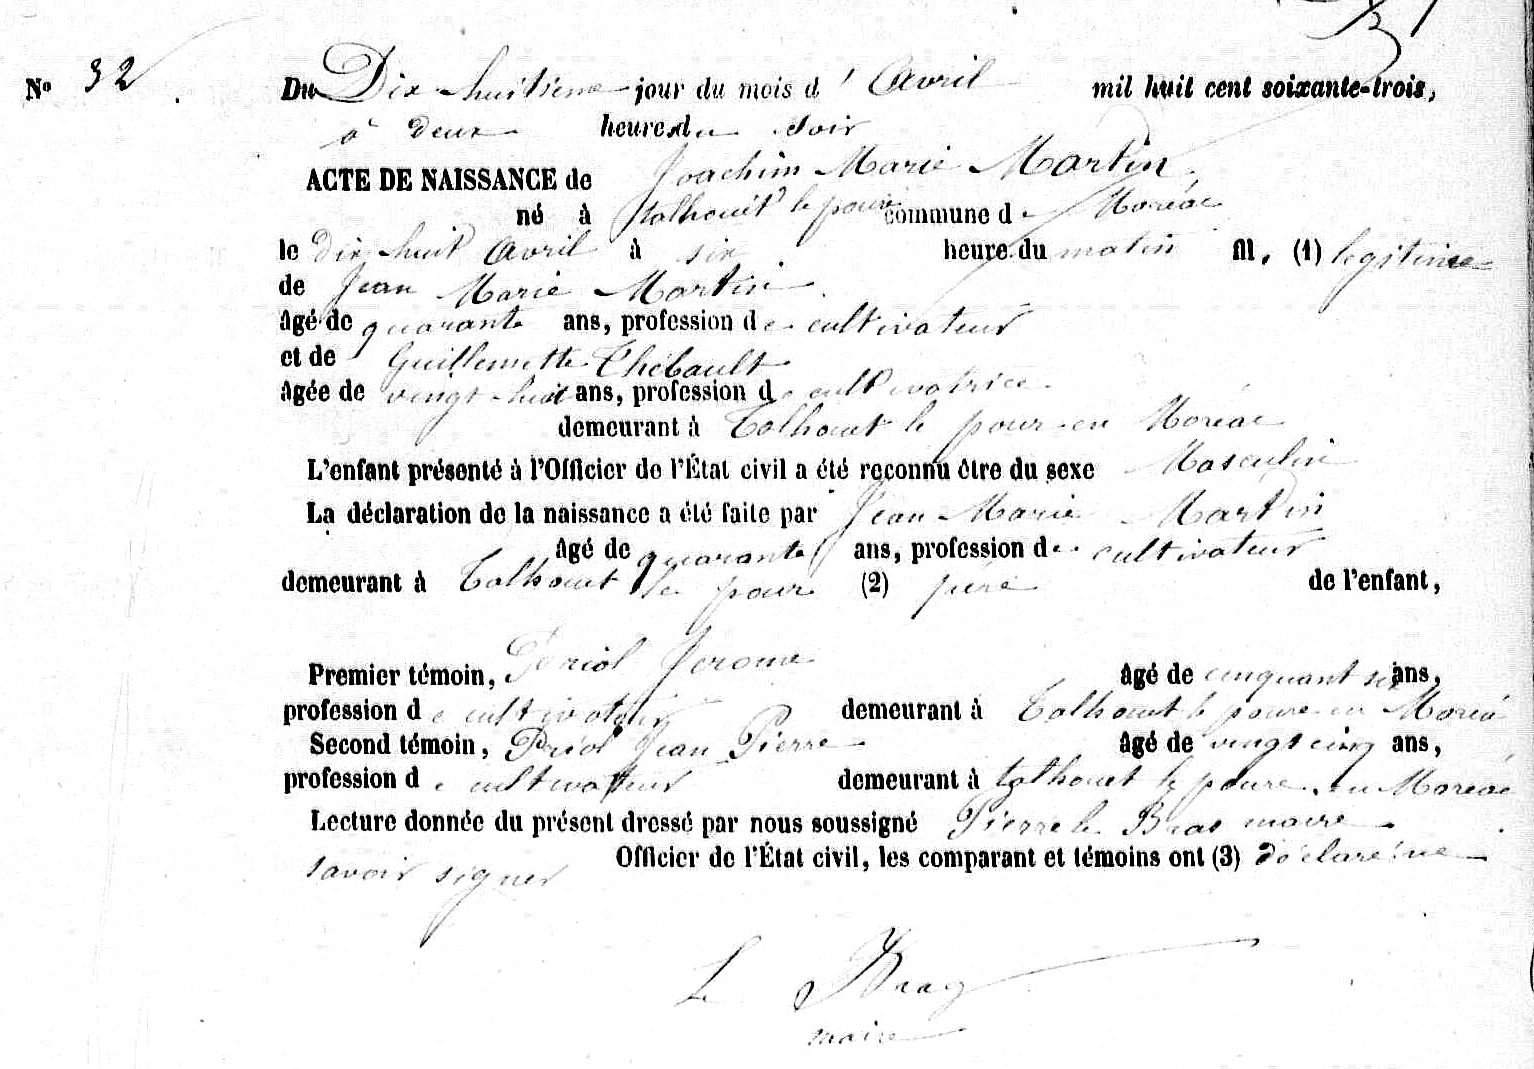 N° 32
Du Dix huitieme jour du mois d'Avril mil huit cent soixante-trois,
à deux heures du soir
ACTE DE NAISSANCE de Joachim Marie Martin
né à talhouët le poure commune de Moréac
le dix huit Avril à six heure du matin fil. (1) legitime
de Jean Marie Martin
âgé de quarante ans, profession de cultivateur
et de Guillemette Thébault
âgée de vingt-huit ans, profession de cultivatrice
demeurant à Talhouet le pour en Moréac
L'enfant présenté à l'Officier de l'État civil a été reconnu être du sexe Masculin
La déclaration de la naissance a été faite par Jean Marie Martin
âgé de quarante ans, profession de cultivateur
demeurant à Talhouet le pour (2) père de l'enfant,
Premier témoin, Priol Jerome âgé de cinquant six ans,
profession de cultivateur demeurant à Talhouet le poure en Moréa
Second témoin, Priol Jean Pierre âgé de vingt cinq ans,
profession de cultivateur demeurant à talhouet le poure en Moréac
Lecture donnée du présent dressé par nous soussigné Pierre le Bras maire
Officier de l'État civil, les comparant et témoins ont (3) déclaré ne
savoir signer
Le Bras
maire